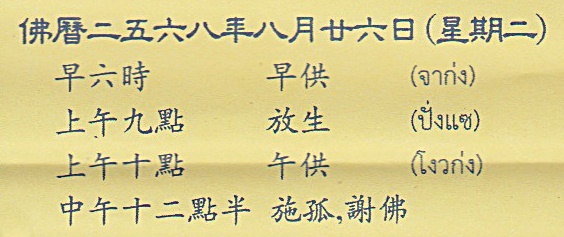 佛曆二五六八年八月廿六日(星期二)
早六時 早供 (จาก่ง)
上午九點 放生 (ปั่งแซ)
上午十點 午供 (โงวก่ง)
中午十二點半 施孤,謝佛